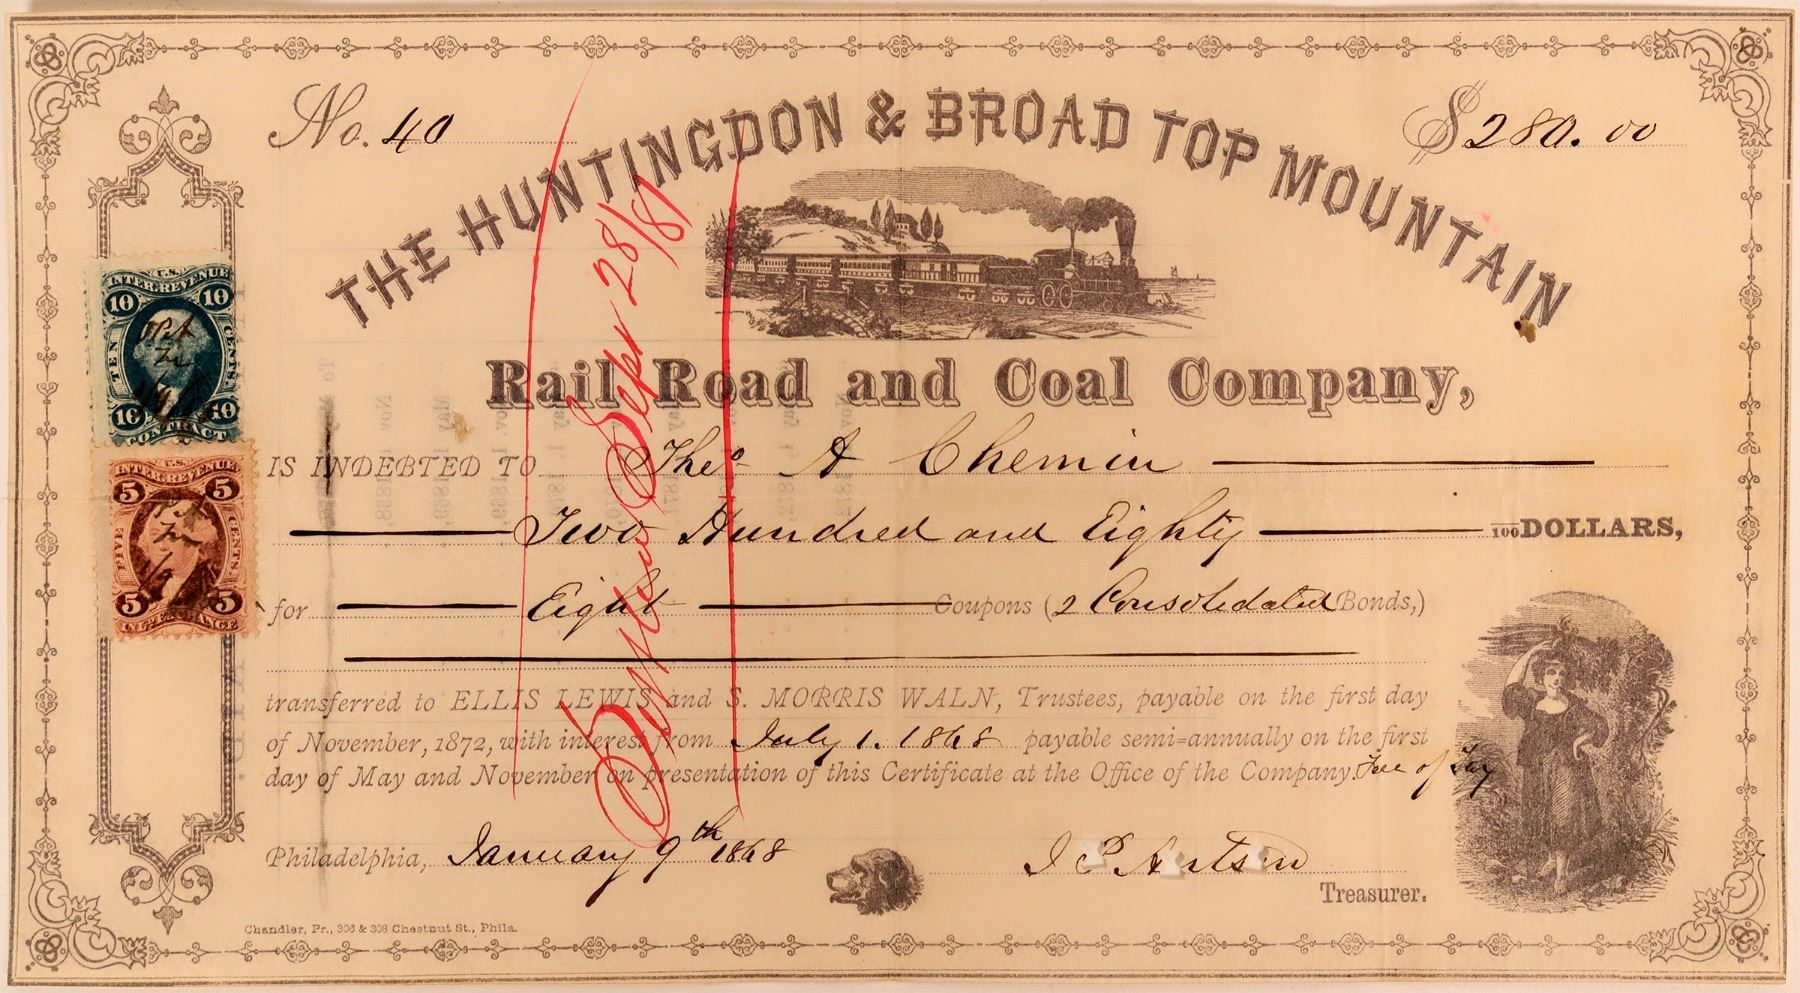 No. 40
$280.00
THE HUNTINGDON & BROAD TOP MOUNTAIN
Rail Road and Coal Company,
IS INDEBTED TO Theo A Chemin
Two Hundred and Eighty 100 DOLLARS,
for Eight Coupons (2 Consolidated Bonds,)
transferred to ELLIS LEWIS and S. MORRIS WALN, Trustees, payable on the first day
of November, 1872, with interest from July 1. 1868 payable semi=annually on the first
day of May and November on presentation of this Certificate at the Office of the Company. Free of Tax
Philadelphia, January 9th 1868
J P Aertsen
Treasurer.
Chandler, Pr., 306 & 308 Chestnut St., Phila.
U.S.
INTER. REVENUE
10 10
TEN CENTS
10 10
CONTRACT
U.S.
INTER. REVENUE
5 5
FIVE CENTS
5 5
INL. EXCHANGE
1/9
Sepr 28/81